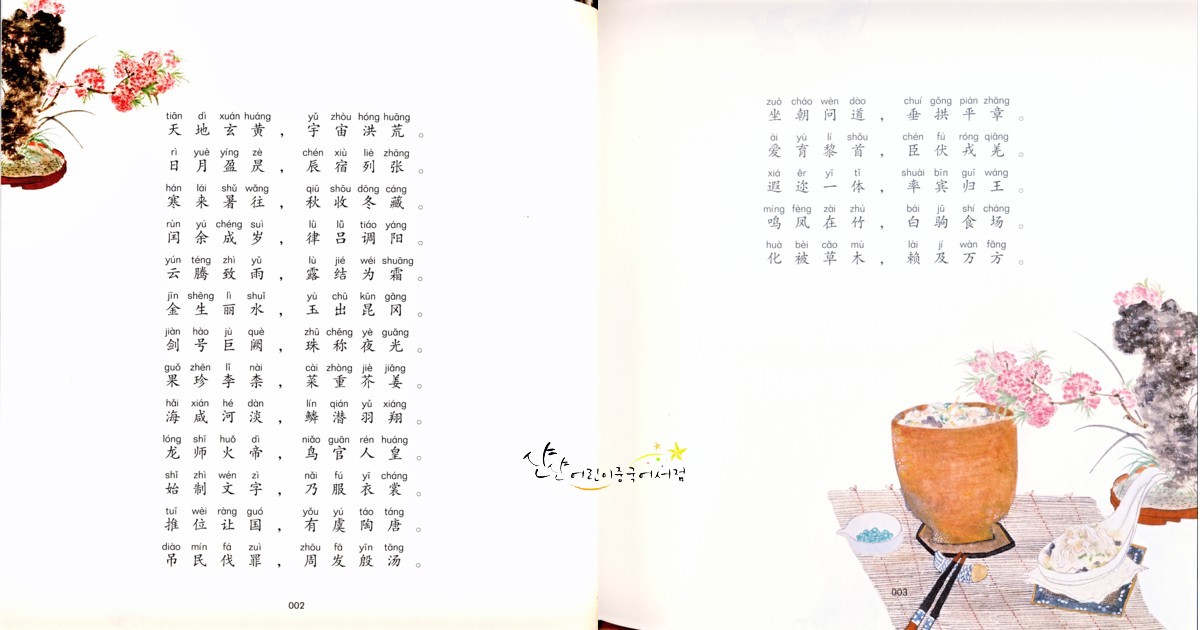 tiān dì xuán huáng yǔ zhòu hóng huāng
天地玄黄，宇宙洪荒。
rì yuè yíng zè chén xiù liè zhāng
日月盈昃，辰宿列张。
hán lái shǔ wǎng qiū shōu dōng cáng
寒来暑往，秋收冬藏。
rùn yú chéng suì lǜ lǚ tiáo yáng
闰余成岁，律吕调阳。
yún téng zhì yǔ lù jié wéi shuāng
云腾致雨，露结为霜。
jīn shēng lì shuǐ yù chū kūn gāng
金生丽水，玉出昆冈。
jiàn hào jù què zhū chēng yè guāng
剑号巨阙，珠称夜光。
guǒ zhēn lǐ nài cài zhòng jiè jiāng
果珍李柰，菜重芥姜。
hǎi xián hé dàn lín qián yǔ xiáng
海咸河淡，鳞潜羽翔。
lóng shī huǒ dì niǎo guān rén huáng
龙师火帝，鸟官人皇。
shǐ zhì wén zì nǎi fú yī cháng
始制文字，乃服衣裳。
tuī wèi ràng guó yǒu yú táo táng
推位让国，有虞陶唐。
diào mín fá zuì zhōu fā yīn tāng
吊民伐罪，周发殷汤。
002
zuò cháo wèn dào chuí gǒng pián zhāng
坐朝问道，垂拱平章。
ài yù lí shǒu chén fú róng qiāng
爱育黎首，臣伏戎羌。
xiá ěr yī tǐ shuài bīn guī wáng
遐迩一体，率宾归王。
míng fèng zài zhú bái jū shí cháng
鸣凤在竹，白驹食场。
huà bèi cǎo mù lài jí wàn fāng
化被草木，赖及万方。
산산 어린이중국어서점
003